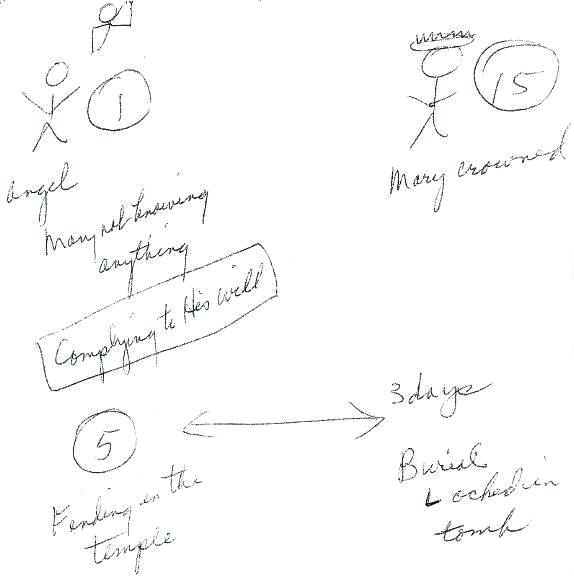 1
15
angel
Mary crowned
Mary not knowing
anything
Complying to His will
5
3 days
Finding in the
temple
Burial
Locked in
tomb